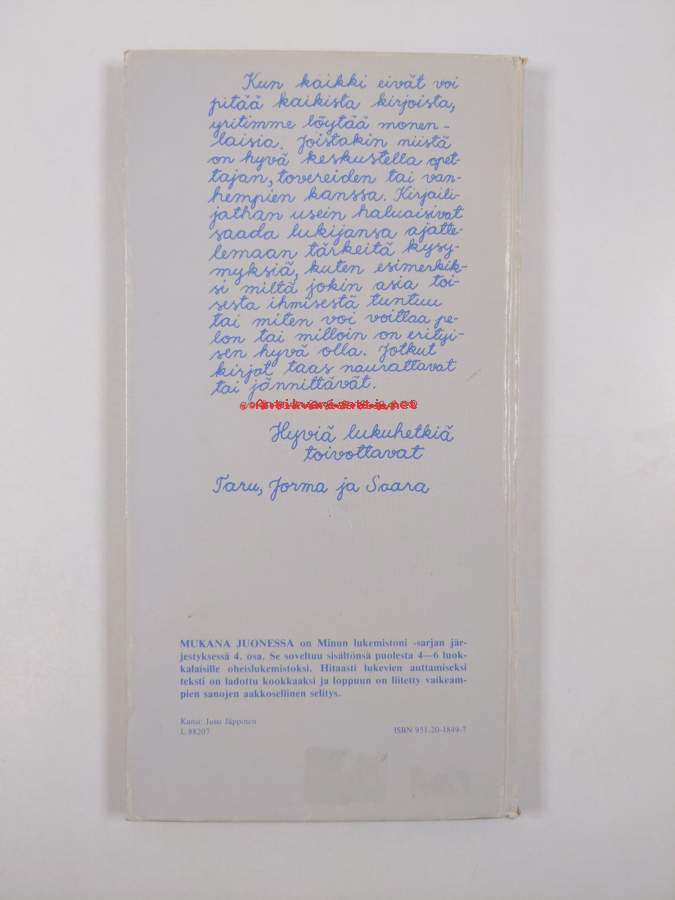 Kun kaikki eivät voi
pitää kaikista kirjoista,
yritimme löytää monen-
laisia. Joistakin niistä
on hyvä keskustella opet-
tajan, tovereiden tai van-
hempien kanssa. Kirjaili-
jathan usein haluaisivat
saada lukijansa ajatte-
lemaan tärkeitä kysy-
myksiä, kuten esimerkik-
si miltä jokin asia toi-
sesta ihmisestä tuntuu
tai miten voi voittaa pe-
lon tai milloin on erityi-
sen hyvä olla. Jotkut
kirjat taas naurattavat
tai jännittävät.
Hyviä lukuhetkiä
toivottavat
Taru, Jorma ja Saara
MUKANA JUONESSA on Minun lukemistoni -sarjan jär-
jestyksessä 4. osa. Se soveltuu sisältönsä puolesta 4—6 luok-
kalaisille oheislukemistoksi. Hitaasti lukevien auttamiseksi
teksti on ladottu kookkaaksi ja loppuun on liitetty vaikeam-
pien sanojen aakkosellinen selitys.
Kansi: Jussi Jäppinen
L 88207
ISBN 951-20-1849-7